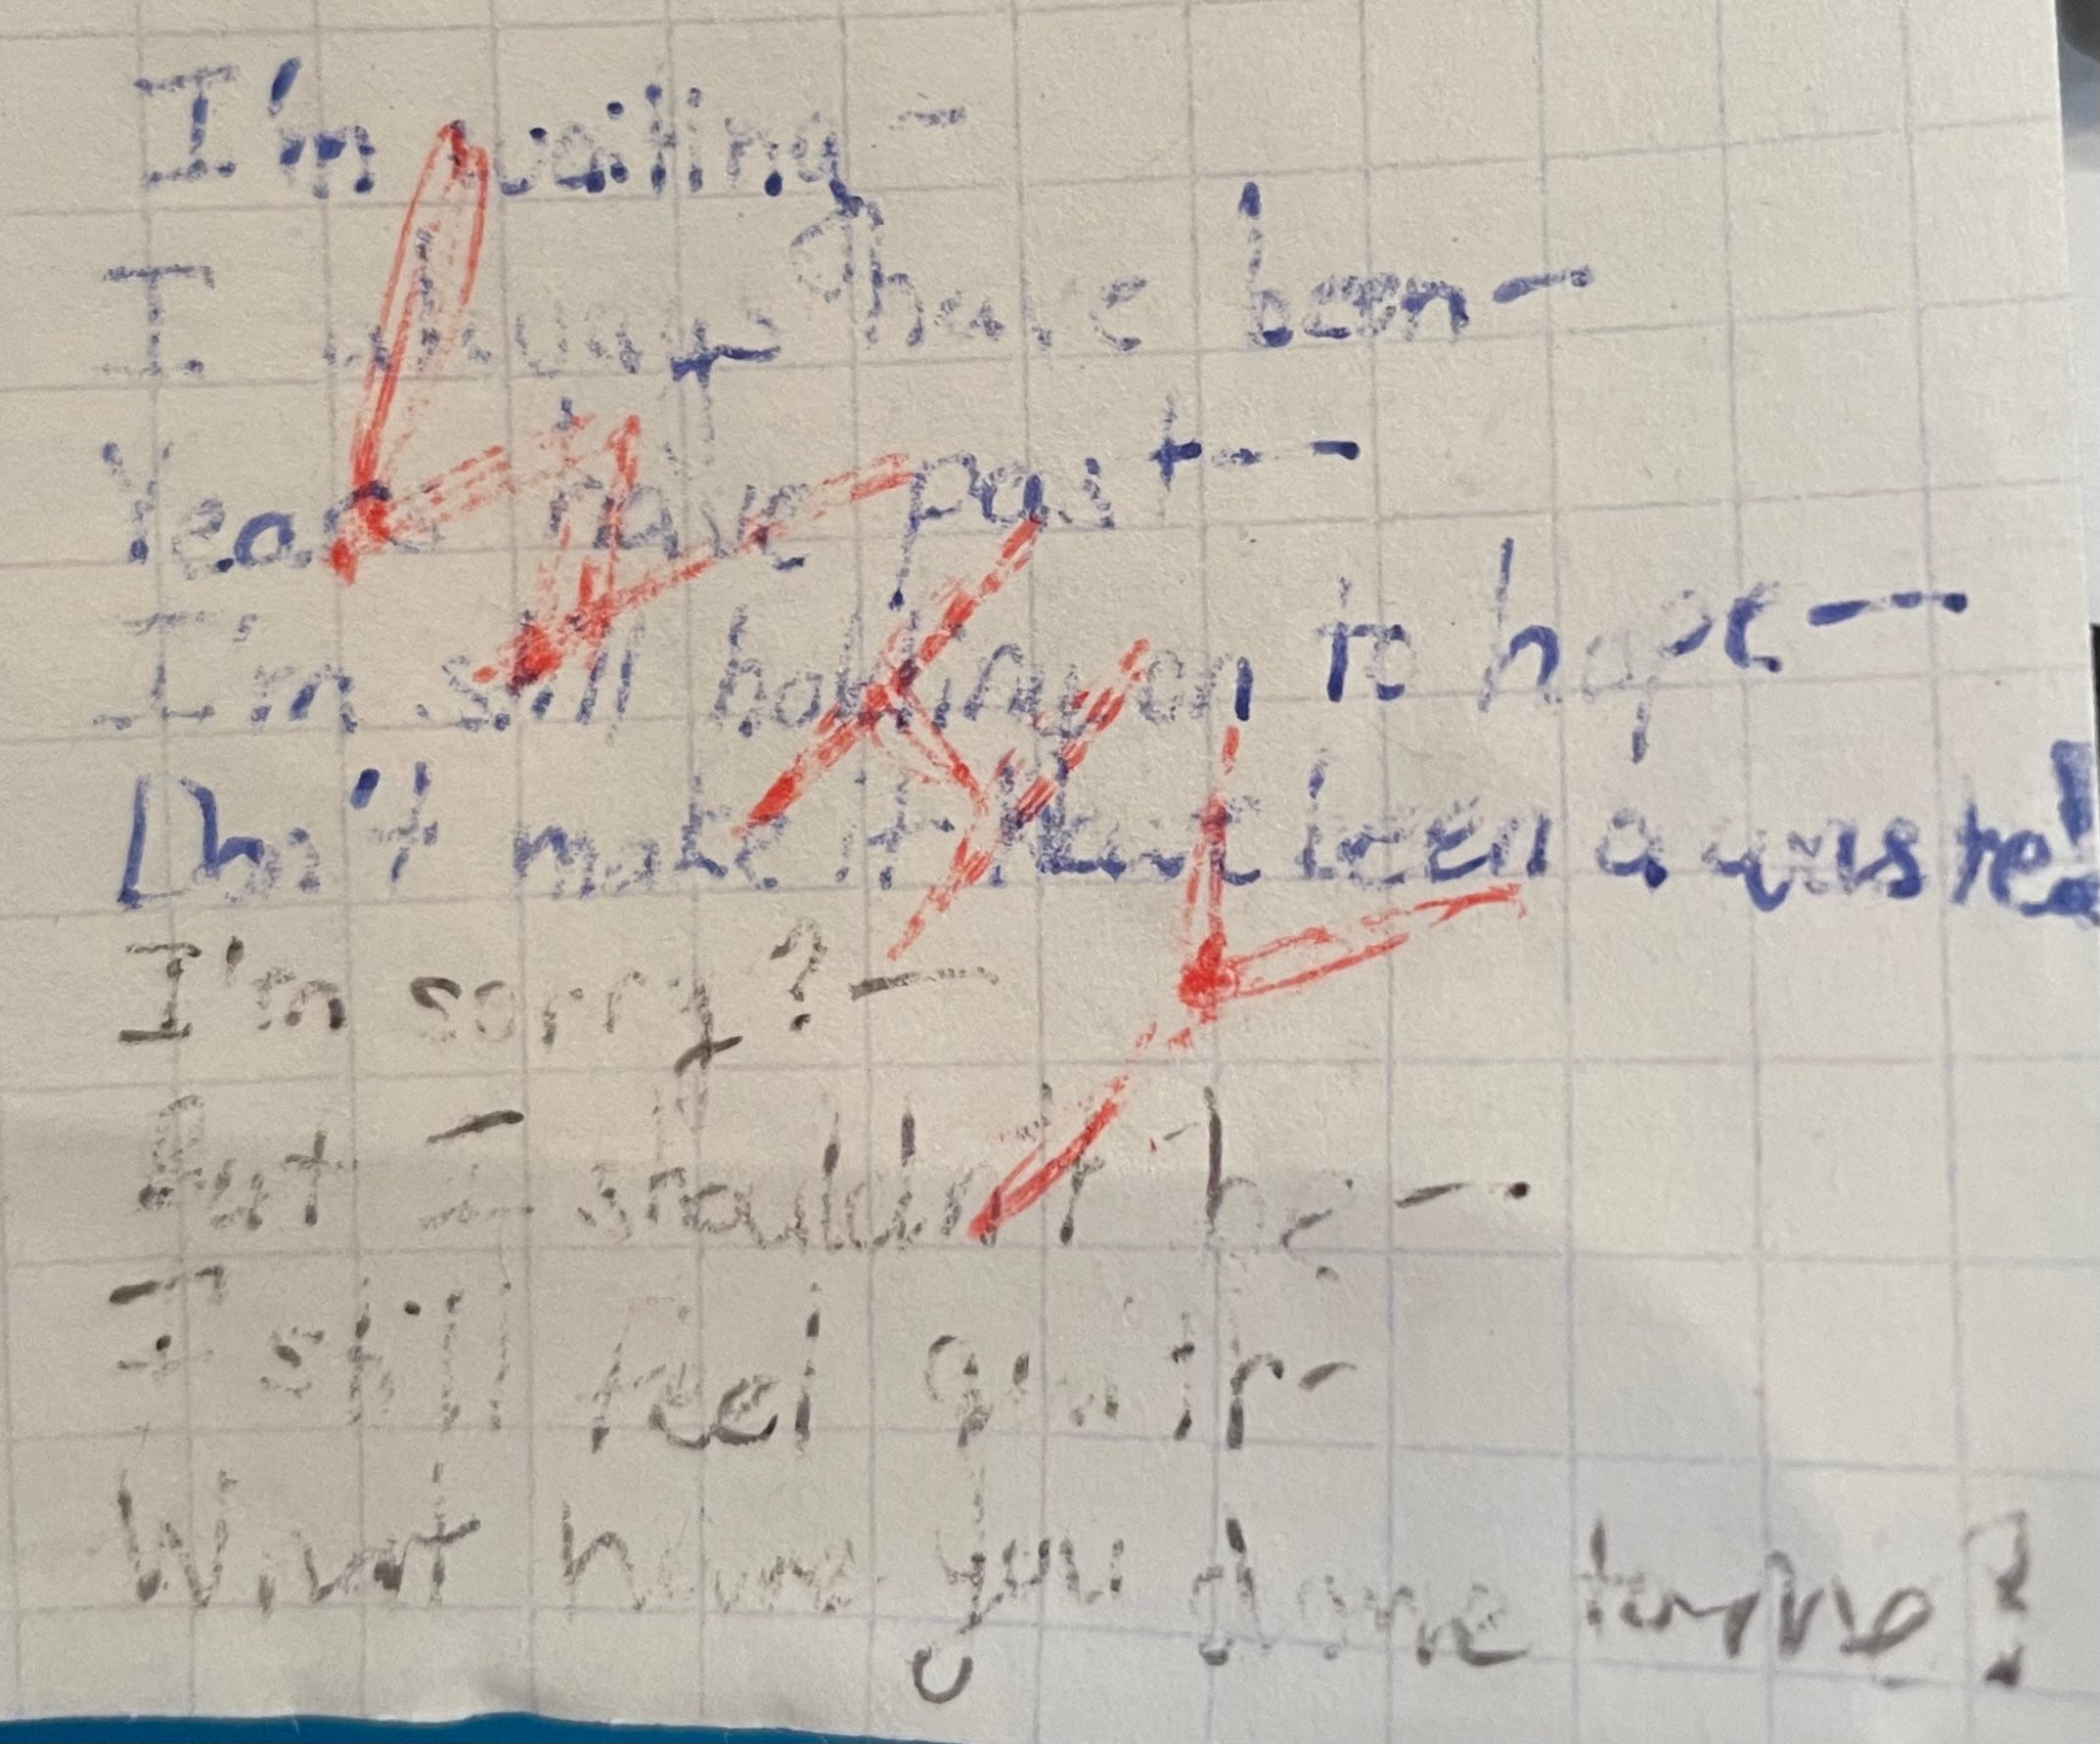 I'm waiting -
I always have been -
Years have past --
I'm still holding on to hope -
Don't make it have been a waste!
I'm sorry? -
But I shouldn't be -
I still feel guilty -
What have you done to me?